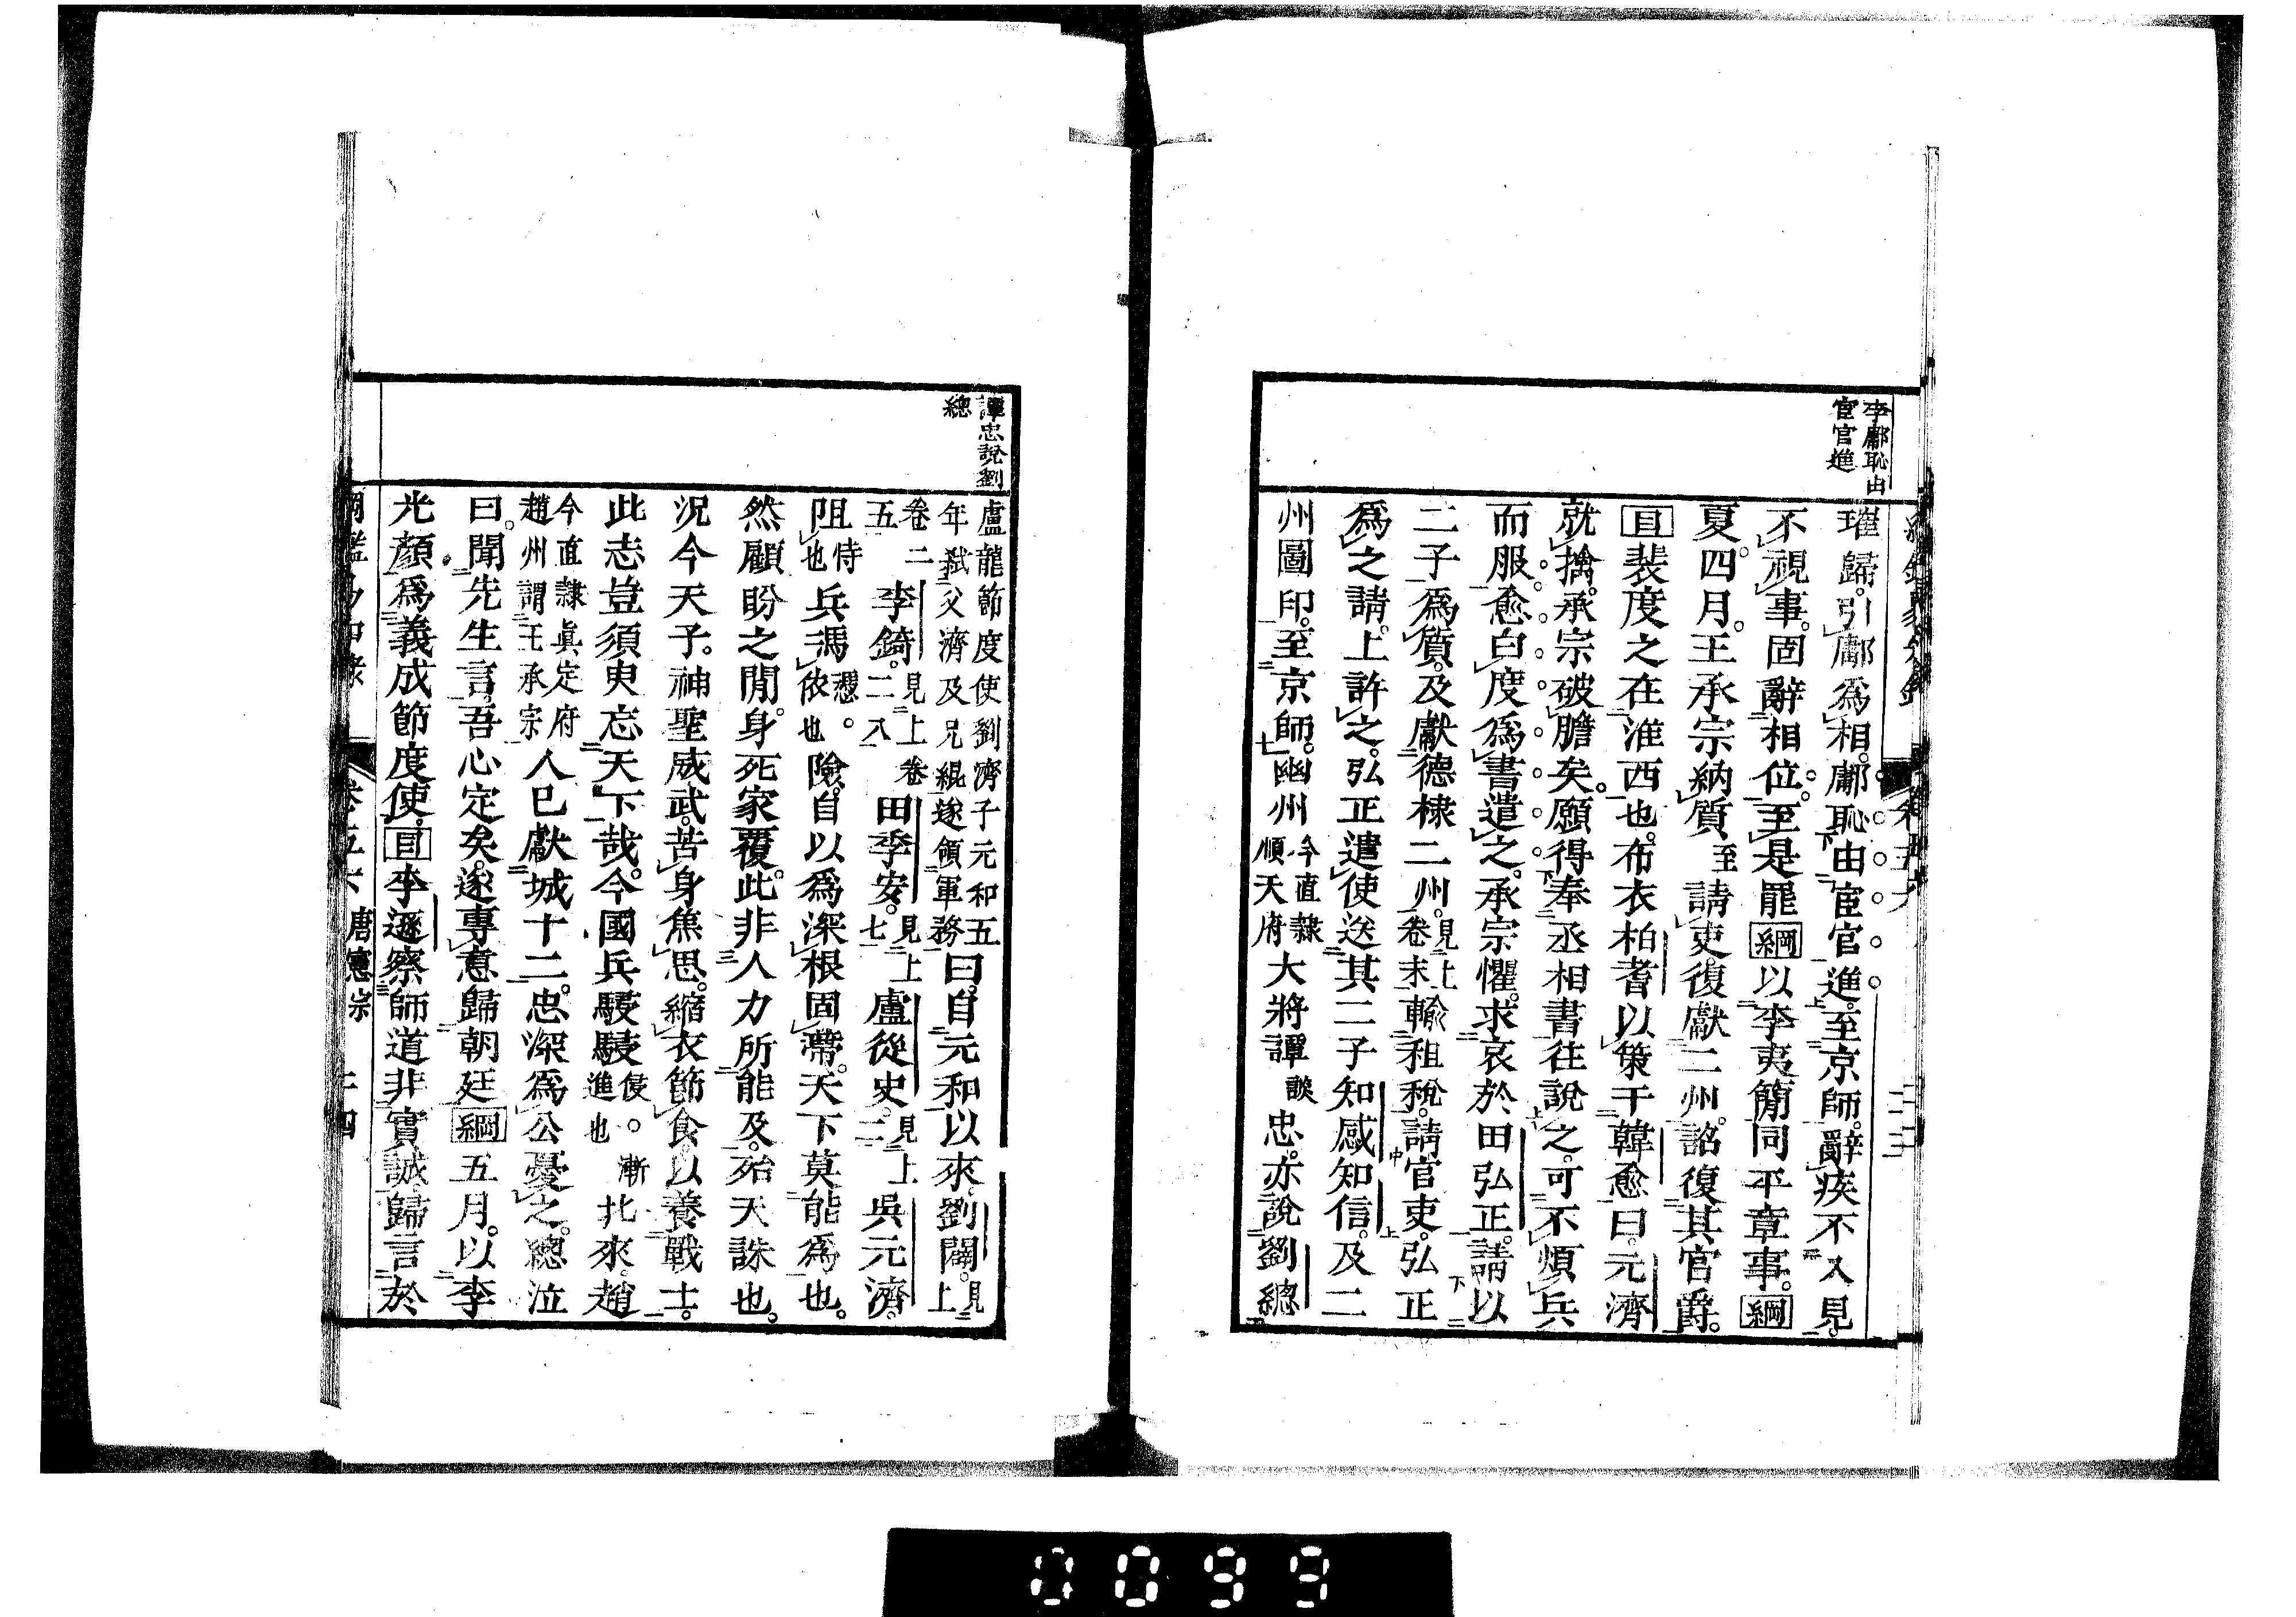 李鄘恥由
宦官進
璀歸。引鄘爲相。鄘恥由宦官進。至京師。辭疾不入見。
不視事。固辭相位。至是罷綱以李夷簡同平章事。綱
夏。四月。王承宗納質至請吏。復獻二州。詔復其官爵。
目裴度之在淮西也。布衣柏耆以策干韓愈曰。元濟
就擒。承宗破膽矣。願得奉丞相書往說之。可不煩兵
而服。愈白度。爲書遣之。承宗懼。求哀於田弘正。請以
二子爲質。及獻德棣二州。見上卷末輸租稅。請官吏。弘正
爲之請。上許之。弘正遣使送其二子知感知信。及二
州圖印。至京師。幽州今直隸順天府大將譚談忠。亦說劉總
譚忠說劉
總
盧龍節度使劉濟子元和五年弒父濟及兄緄遂領軍務曰。自元和以來。劉闢。見上
卷二五李錡。見上卷二八田季安。見上七盧從史。見上二吳元濟。
阻恃也兵馮憑。依也險。自以爲深根固蔕。天下莫能爲也。
然顧盼之閒。身死家覆。此非人力所能及。殆天誅也。
況今天子。神聖威武。苦身焦思。縮衣節食。以養戰士。
此志豈須臾忘天下哉。今國兵駸駸侵。漸進也北來。趙
今直隸眞定府趙州謂王承宗人已獻城十二。忠深爲公憂之。總泣
曰。聞先生言。吾心定矣。遂專意歸朝廷綱五月。以李
光顏爲義成節度使。目李遜察師道非實誠。歸言於
卷五六 唐憲宗